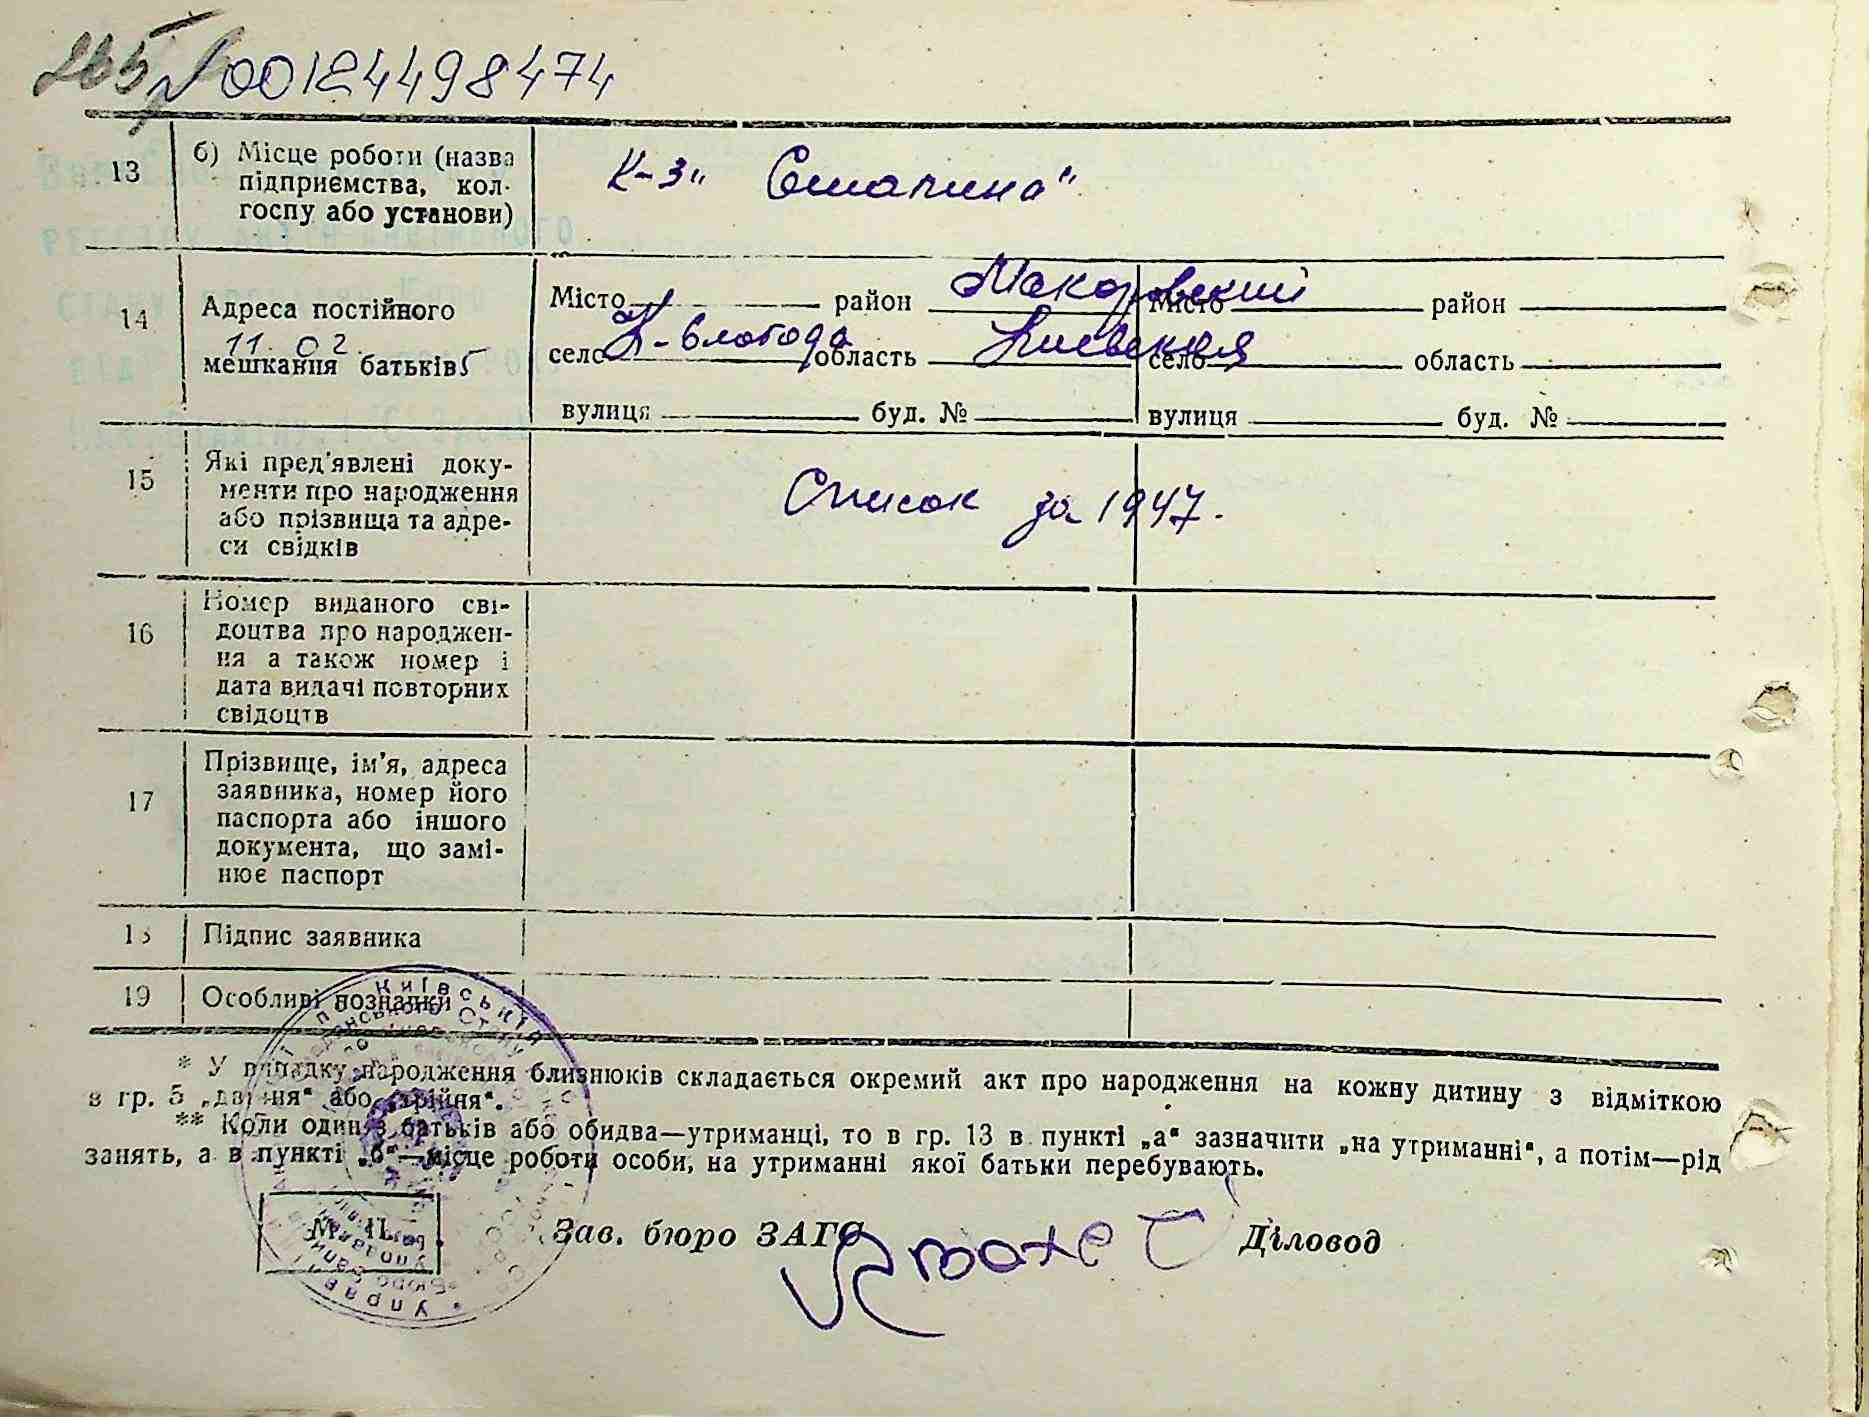 265
№00124498474
13
б) Місце роботи (назва
підприємства, кол-
госпу або установи)
К-з „Сталина"
14
Адреса постійного
11. 02
мешкання батьків
Місто район Макоровский
село К-Слобода область Киевская
вулиця буд. №
Місто район
село область
вулиця буд. №
15
Які пред'явлені доку-
менти про народження
або прізвища та адре-
си свідків
Список за 1947.
16
Номер виданого сві-
доцтва про народжен-
ня а також номер і
дата видачі повторних
свідоцтв
17
Прізвище, ім'я, адреса
заявника, номер його
паспорта або іншого
документа, що замі-
нює паспорт
18
Підпис заявника
19
Особливі познаки
* У випадку народження близнюків складається окремий акт про народження на кожну дитину з відміткою
в гр. 5 „двійня" або „трійня".
** Коли один з батьків або обидва—утриманці, то в гр. 13 в пункті „а" зазначити „на утриманні", а потім—рід
занять, а в пункті „б"—місце роботи особи, на утриманні якої батьки перебувають.
М. П.
Зав. бюро ЗАГС
Діловод
Київська
Управ